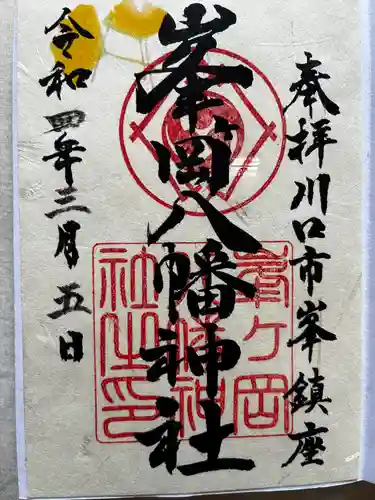 奉拝川口市峯鎮座
峯岡八幡神社
令和四年三月五日
峯ケ岡
八幡神
社之印